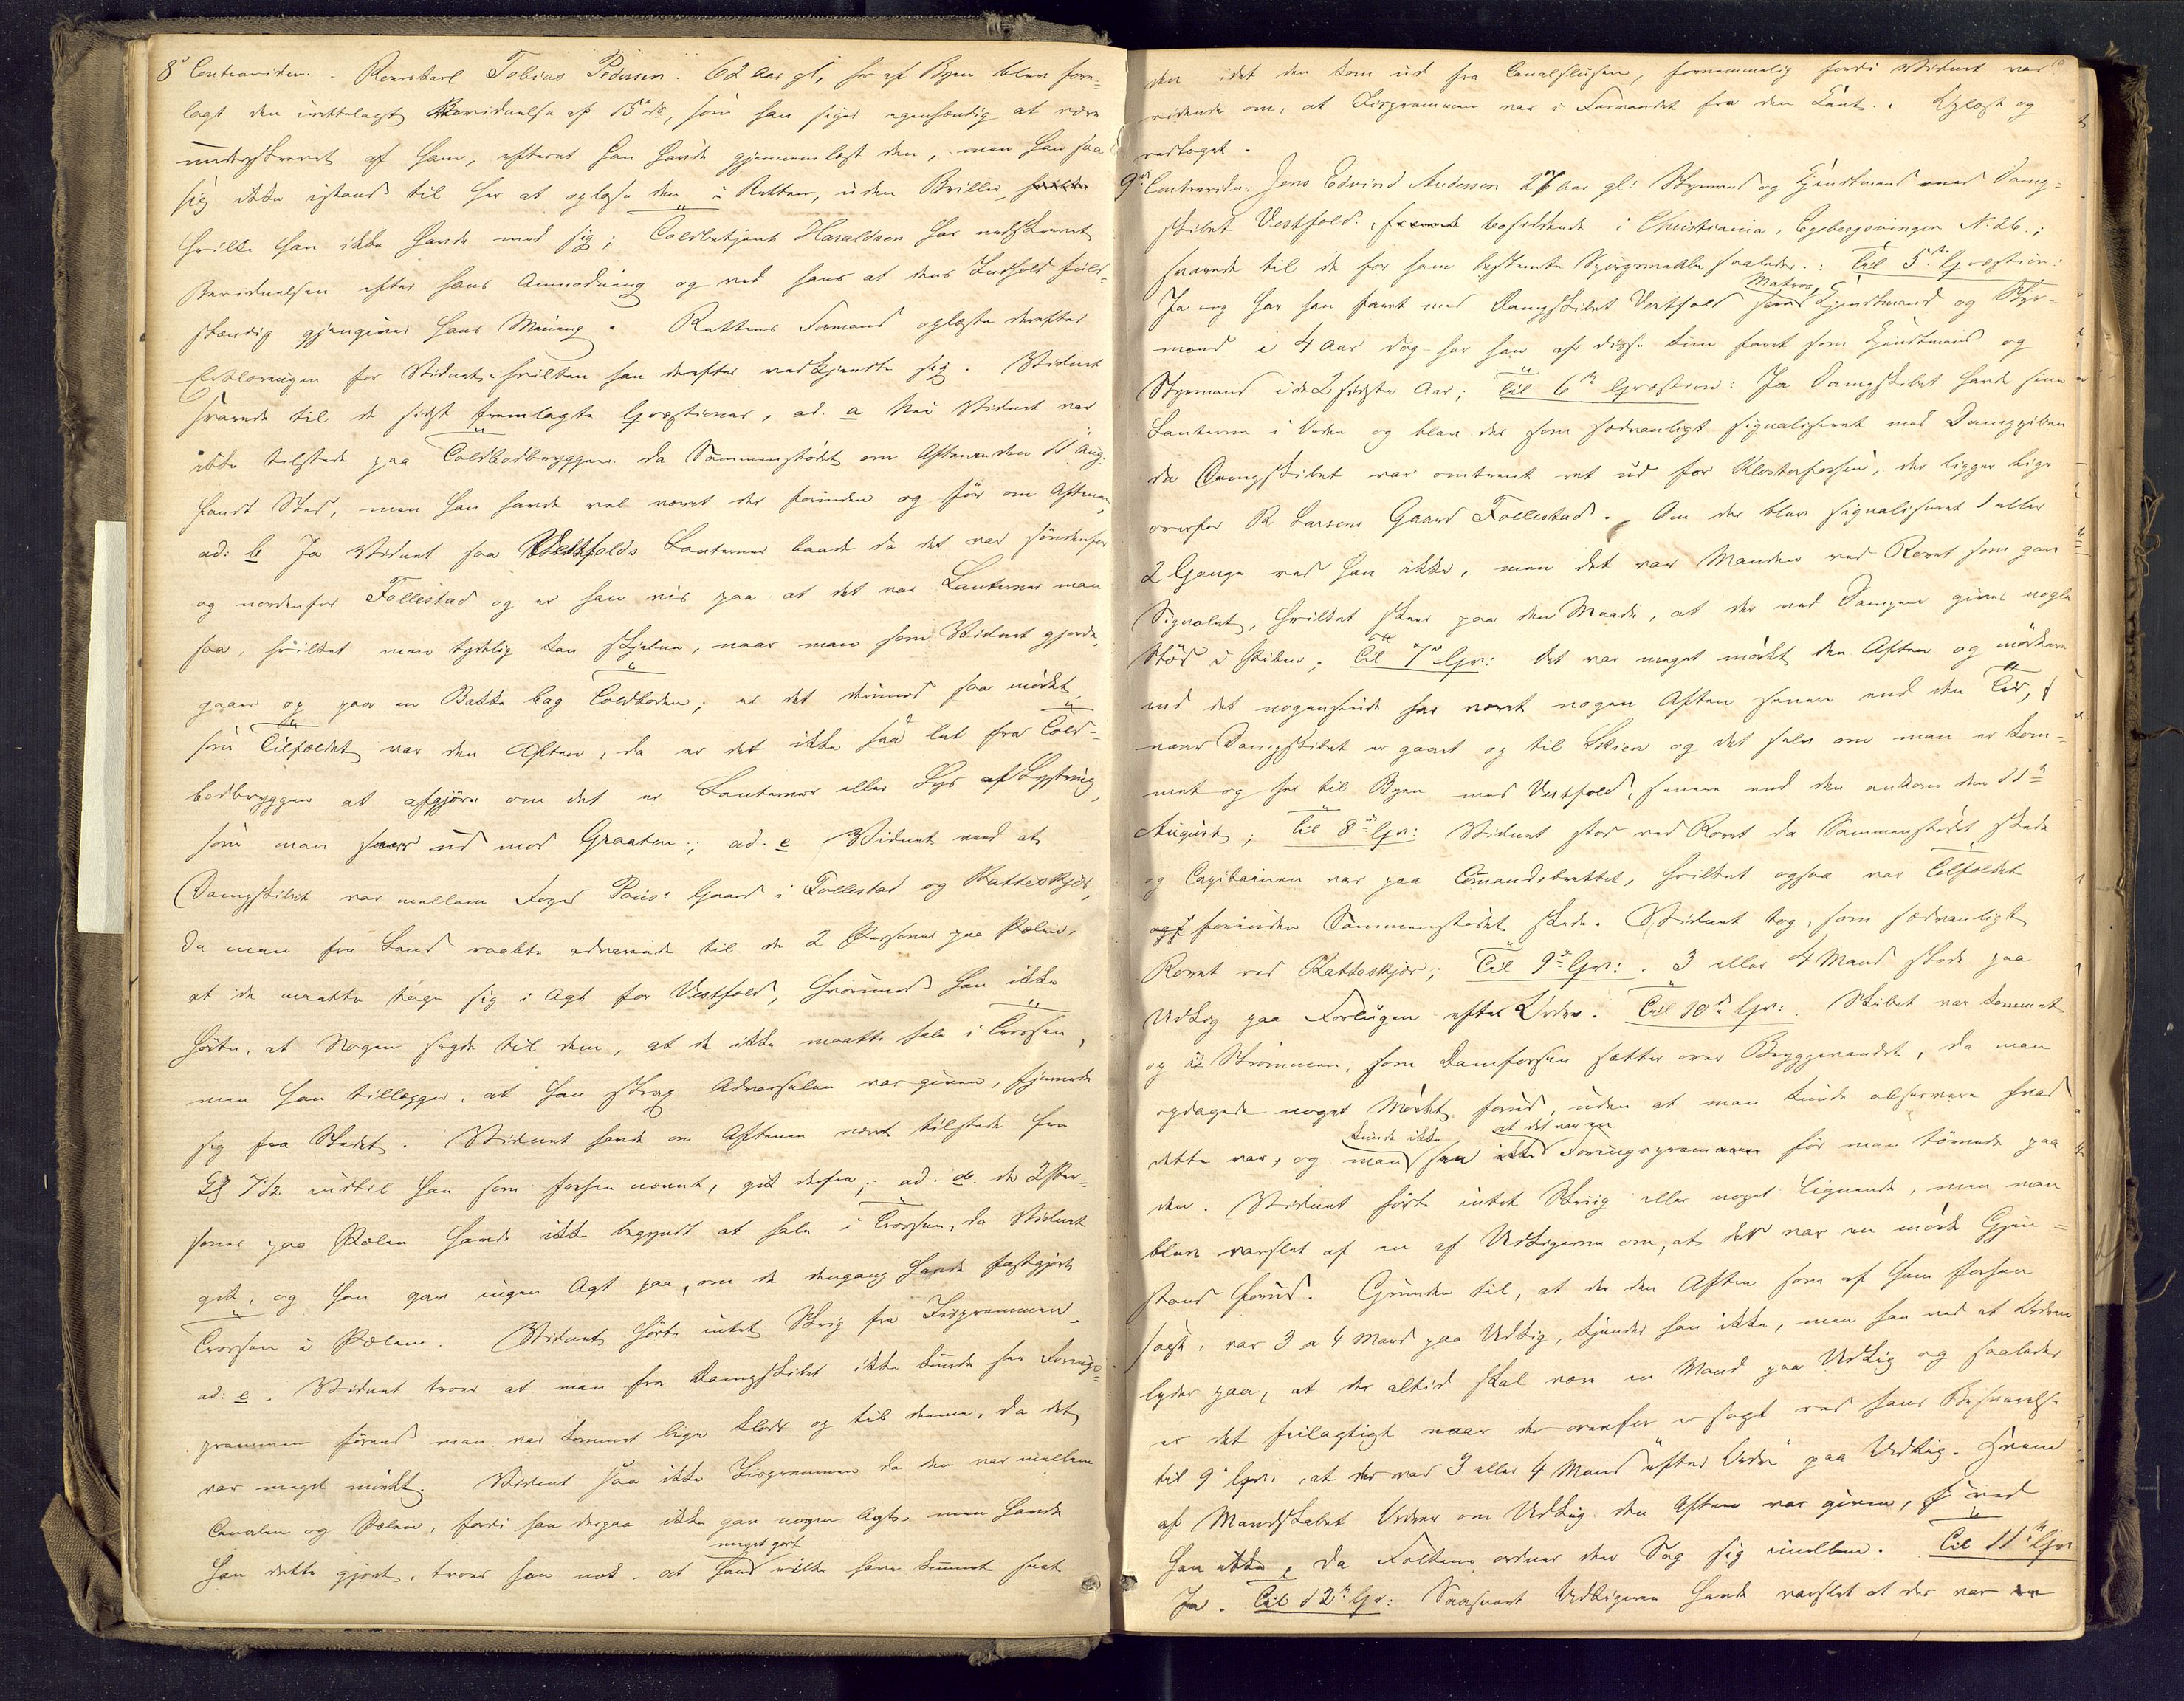 8de Contravidne. Roerskarl Tobias Pedersen. 62 Aar gl, her af Byen blev fore-
lagt den indtelagte Bevidnelse af 15de ds, som han siger egenhændig at være
underskrevet af ham, efterat han havde gjennemlæst den, men han saa
sig ikke istand til her at oplæse den i Retten, uden Briller,
hvilke han ikke havde med sig; Toldbetjent Haraldsen har nedskrevet
Bevidnelsen efter hans Anmodning og ved hans at dens Indhold fuld-
stændig gjengiver hans Mening. Rettens Formand oplæste derefter
Erklæringen for Vidnet, hvilken han derefter vedkjendte sig. Vidnet
svarede til de sidst fremlagte Qvæstioner, ad. a Nei Vidnet var
ikke tilstede paa Toldbodbryggen da Sammenstødet om Aftenen den 11 Aug:
fandt Sted, men han havde vel været der forinden og før om Aftenen,
ad: b Ja Vidnet saa Vestfolds Lanterner baade da det var søndenfor
og nordenfor Follestad og er han vis paa at det var Lanterner man
saa, hvilket man tydelig kan skjelne, naar man som Vidnet gjorde,
gaar op paa en Bakke bag Toldboden; er det derimod saa mørkt,
som Tilfældet var den Aften, da er det ikke saa let fra Told-
bodbryggen at afgjøre om det er Lanterner eller Lys af Lystring,
som man seer ud mod Graaten; ad. c Vidnet ved at
Dampskibet var mellem Foged Paus: Gaard i Follestad og Katteskjær,
da man fra Land raabte advarende til de 2 Personer paa Pælen,
at de maatte tage sig i Agt for Vestfold, hvorimod han ikke
hørte, at Nogen sagde til dem, at de ikke maatte hale i Trossen,
men han tillægger, at han strax Advarselen var given, fjernede
sig fra Stedet. Vidnet havde om Aftenen været tilstede fra
Kl 7 1/2 indtil han som forhen nævnt, gik derfra; ad. d. de 2 Per-
soner paa Pælen havde ikke begyndt at hale i Trossen, da Vidnet
gik, og han gav ingen Agt paa, om de dengang havde fastgjort
Trossen i Pælen. Vidnet hørte intet Skrig fra Isprammen.
ad: e. Vidnet troer at man fra Dampskibet ikke kunde see Foerings-
prammen førend man var kommet lige klods op til denne, da det
var meget mørkt. Vidnet saa ikke Isprammen da den var mellem
Canalen og Pælen, fordi han derpaa ikke gav nogen Agt, men havde
han dette gjort, troer han nok, at han meget godt vilde have kunnet seet
den idet den kom ud fra Canalslusen, fornemmelig fordi Vidnet var
vidende om, at Isprammen var i Farvandet fra den Kant. Oplæst og
vedtaget.
9de Contravidne Jens Edvind Andersen 27 Aar gl: Styrmand og Kjendtmand med Damp-
skibet Vestfold. bosiddende i Christiania, Egebergsvingen N. 26.;
svarede til de for ham bestemte Spørgsmaale saaledes.: Til 5te Qvæstion:
Ja og har han faret med Dampskibet Vestfold som Matros, Kjendtmand og Styr-
mand i 4 Aar dog har han af disse kun faret som Kjendtmand og
Styrmand i de 2 sidste Aar; Til 6te Qvæstion: Ja Dampskibet havde sine
Lanterner i Orden og blev der som sædvanligt signaliseret med Damppiben
da Dampskibet var omtrent ret ud for Klosterfossen, der ligger lige
overfor R Larsens Gaard Follestad. Om der blev signaliseret 1 eller
2 Gange ved han ikke, men det var Manden ved Roret som gav
Signalet, hvilket skeer paa den Maade, at der ved Dampen gives nogle
Stød i Piben; Til 7de Qv: det var meget mørkt den Aften og mørkere
end det nogensinde har været nogen Aften senere end den Tid,
naar Dampskibet er gaaet op til Skien og det selv om man er kom-
met op her til Byen med Vestfold, senere end den ankom den 11te
August; Til 8de Qv: Vidnet stod ved Roret da Sammenstødet skede
og Capitainen var paa Comandobrettet, hvilket ogsaa var Tilfældet
forinden Sammenstødet skede. Vidnet tog, som sædvanligt
Roret ved Katteskjær; Til 9de Qv:. 3 eller 4 Mand stode paa
Udkig paa Forlugen efter Ordre. Til 10de Qv:. Skibet var kommet
op i Strømmen, som Damfossen sætter over Bryggevandet, da man
opdagede noget Mørkt forud, uden at man kunde observere hvad
dette var, og man kunde ikke see at det var en Føringspram før man tørnede paa
den. Vidnet hørte intet Skrig eller noget lignende, men man
blev varslet af en af Udkigerne om, at der var en mørk Gjen-
stand forud. Grunden til, at der den Aften som af ham forhen
sagt, var 3 a 4 Mand paa Udkig, kjender han ikke, men han ved at Ordren
lyder paa, at der altid skal være en Mand paa Udkig og saaledes
er det feilagtigt naar der ovenfor er sagt ved hans Besvarelse
til 9de Qv:, at der var 3 eller 4 Mand "efter Ordre" paa Udkig. Hvem
af Mandskabet Ordren om Udkig den Aften var given, ved
han ikke, da Folkene ordner den Sag sig imellem. Til 11te Qv:
Ja. Til 12te Qv: Saasnart Udkigeren havde varslet at der var en